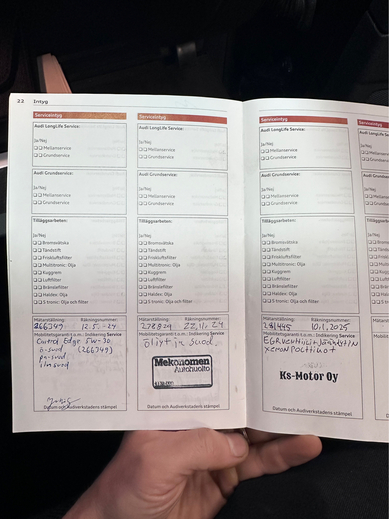 22 Intyg
Serviceintyg
Audi LongLife Service:
Ja/Nej
Mellanservice
Grundservice
Audi Grundservice:
Ja/Nej
Mellanservice
Grundservice
Tilläggsarbeten:
Ja/Nej
Bromsvätska
Tändstift
Friskluftsfilter
Multitronic: Olja
Kuggrem
Luftfilter
Bränslefilter
Haldex: Olja
S tronic: Olja och filter
Mätarställning: Räkningsnummer:
266349 12.5.-24
Mobilitetsgaranti t.o.m.: Indikering Service
Castrol Edge 5W-30
(266349)
Datum och Audiverkstadens stämpel
Serviceintyg
Audi LongLife Service:
Ja/Nej
Mellanservice
Grundservice
Audi Grundservice:
Ja/Nej
Mellanservice
Grundservice
Tilläggsarbeten:
Ja/Nej
Bromsvätska
Tändstift
Friskluftsfilter
Multitronic: Olja
Kuggrem
Luftfilter
Bränslefilter
Haldex: Olja
S tronic: Olja och filter
Mätarställning: Räkningsnummer:
22.11.24
Mobilitetsgaranti t.o.m.: Indikering Service
öljyt ja suod.
Mekonomen
Autohuolto
Datum och Audiverkstadens stämpel
Serviceintyg
Audi LongLife Service:
Ja/Nej
Mellanservice
Grundservice
Audi Grundservice:
Ja/Nej
Mellanservice
Grundservice
Tilläggsarbeten:
Ja/Nej
Bromsvätska
Tändstift
Friskluftsfilter
Multitronic: Olja
Kuggrem
Luftfilter
Bränslefilter
Haldex: Olja
S tronic: Olja och filter
Mätarställning: Räkningsnummer:
281445 10.1.2025
Mobilitetsgaranti t.o.m.: Indikering Service
xenon polttimot
Ks-Motor Oy
Datum och Audiverkstadens stämpel
Serviceintyg